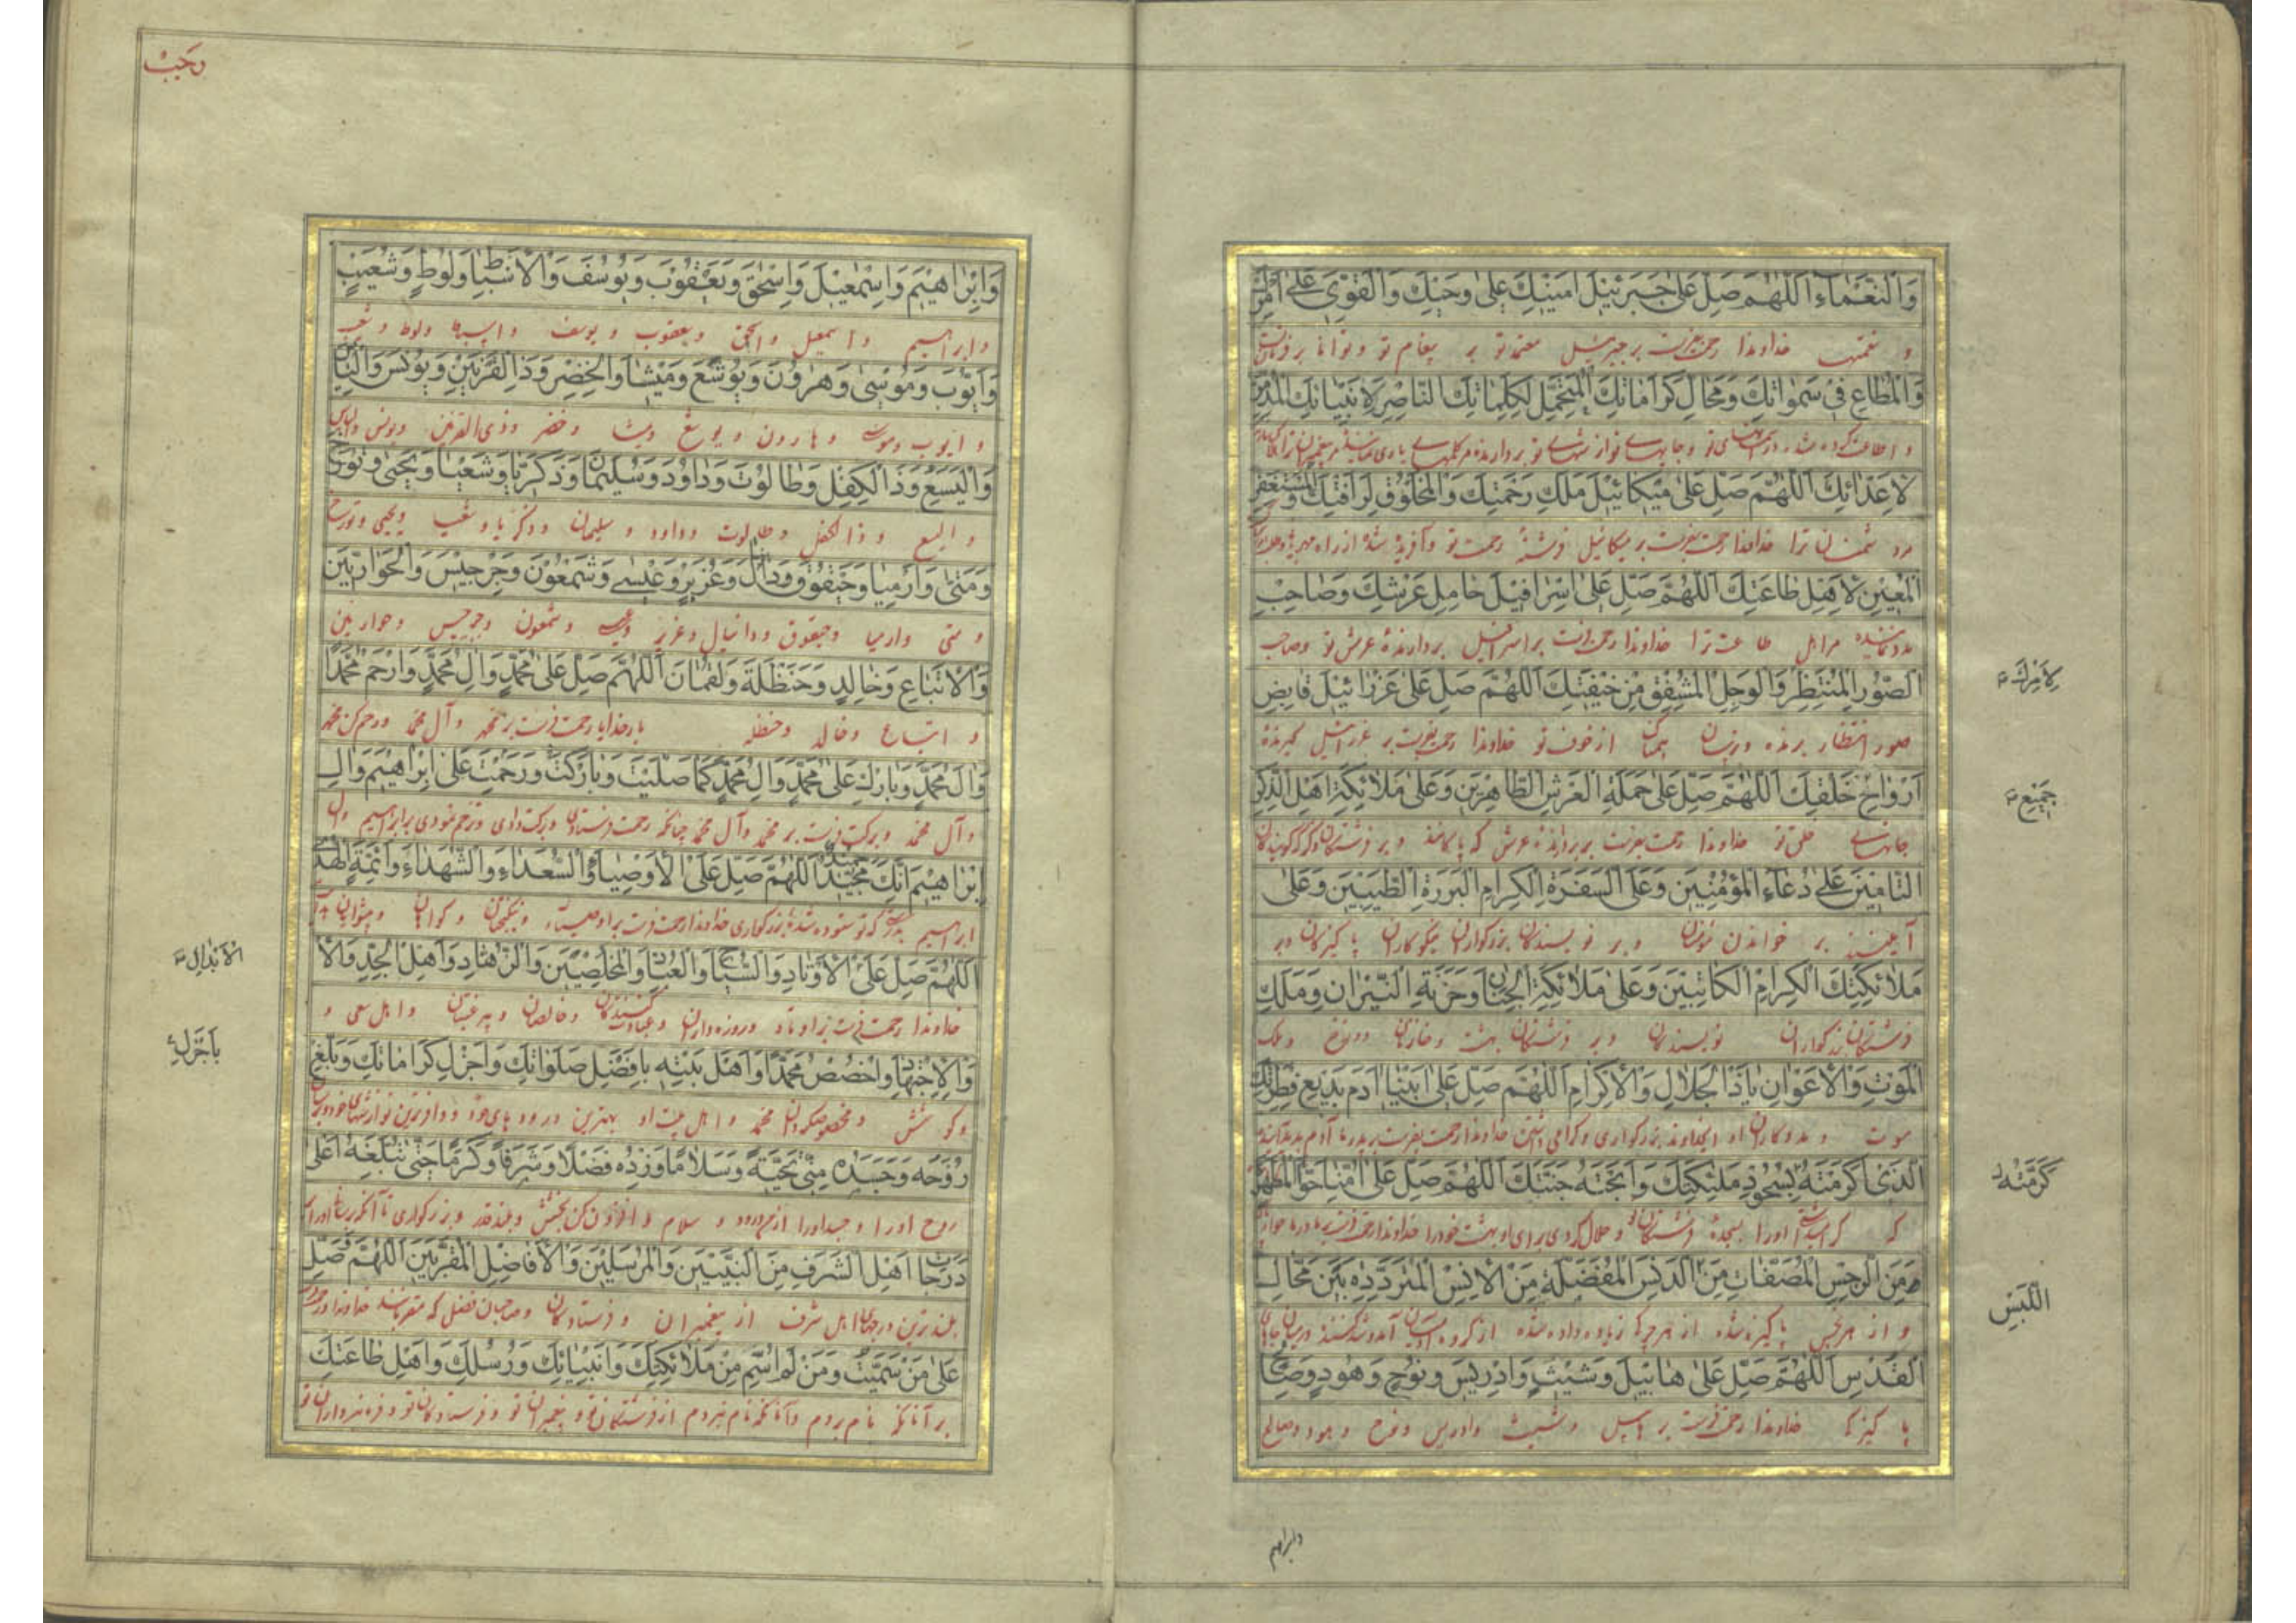 وَالنَّعْمَاءِ اَللّٰهُمَّ صَلِّ عَلٰى جَبْرَئِيْلَ اَمِيْنِكَ عَلٰى وَحْيِكَ وَالْقَوِيِّ عَلٰى اَمْرِكَ
و نعمتها خداوندا رحمت بفرست بر جبرئیل معتمد تو بر پیغام تو و توانا بر فرمان
وَالْمُطَاعِ فِيْ سَمٰوَاتِكَ وَمَحَالِّ كَرَامَاتِكَ الْمُتَحَمِّلِ لِكَلِمَاتِكَ النَّاصِرِ لِاَنْبِيَائِكَ الْمُدَمِّرِ
و اطاعت کرده شده در آسمانهای تو و جایهای نوازشهای تو بردارنده مر کلمهای
لِاَعْدَائِكَ اَللّٰهُمَّ صَلِّ عَلٰى مِيْكَائِيْلَ مَلَكِ رَحْمَتِكَ وَالْمَخْلُوْقِ لِرَأْفَتِكَ وَالْمُسْتَغْفِرِ
مر دشمنان ترا خداوندا رحمت بفرست بر میکائیل فرشته رحمت تو و آفریده شده از راه
الْمُعِيْنِ لِاَهْلِ طَاعَتِكَ اَللّٰهُمَّ صَلِّ عَلٰى اِسْرَافِيْلَ حَامِلِ عَرْشِكَ وَصَاحِبِ
مدد نماینده مر اهل طاعت ترا خداوندا رحمت فرست بر اسرافیل بردارندۀ عرش تو وصاحب
الصُّوْرِ الْمُنْتَظِرِ وَالْوَجِلِ الْمُشْفِقِ مِنْ خِيْفَتِكَ اَللّٰهُمَّ صَلِّ عَلٰى عَزْرَائِيْلَ قَابِضِ
صور انتظار برنده و ترسان از خوف تو خداوندا رحمت بفرست بر عزرائیل گیرنده
اَرْوَاحِ خَلْقِكَ اَللّٰهُمَّ صَلِّ عَلٰى حَمَلَةِ الْعَرْشِ الطَّاهِرِيْنَ وَعَلٰى مَلَائِكَةِ اَهْلِ الذِّكْرِ
جانهای خلق تو خداوندا رحمت بفرست بر بردارنده عرش که پاکانند و بر فرشتگان
التَّامِنِيْنَ عَلٰى دُعَاءِ الْمُؤْمِنِيْنَ وَعَلَى السَّفَرَةِ الْكِرَامِ الْبَرَرَةِ الطَّيِّبِيْنَ وَعَلٰى
بر خواندن مؤمنان و بر نویسندگان بزرکواران نیکوکاران پاکیزگان و بر
مَلَائِكَتِكَ الْكِرَامِ الْكَاتِبِيْنَ وَعَلٰى مَلَائِكَةِ الْجِنَانِ وَخَزَنَةِ النِّيْرَانِ وَمَلَكِ
فرشتگان بزرکواران نویسندگان و بر فرشتگان بهشت و خازنان دوزخ و ملک
الْمَوْتِ وَالْاَعْوَانِ يَا ذَا الْجَلَالِ وَالْاِكْرَامِ اَللّٰهُمَّ صَلِّ عَلٰى اَبِيْنَا اٰدَمَ بَدِيْعِ فِطْرَتِكَ
موت و مددکاران او ایخداوند بزرکواری و گرامی داشتن خداوندا رحمت بفرست بر پدر ما آدم
الَّذِيْ اَكْرَمْتَهُ بِسُجُوْدِ مَلٰئِكَتِكَ وَاَبَحْتَهُ جَنَّتَكَ اَللّٰهُمَّ صَلِّ عَلٰى اُمِّنَا حَوَّا الْمُطَهَّرَةِ
که اورا بسجدۀ فرشتگان و حلال کردی برای او بهشت خود را خداوندا رحمت فرست بر مادر ما حوا
مِنَ الرِّجْسِ الْمُصَفَّاتِ مِنَ الدَّنَسِ الْمُفَضَّلَةِ مِنَ الْاِنْسِ الْمُتَرَدِّدَةِ بَيْنَ مَحَالِّ
و از هر نجس پاکیزه شده از هر چرک زیاده داده شده از گروه آدمیان
الْقُدْسِ اَللّٰهُمَّ صَلِّ عَلٰى هَابِيْلَ وَشِيْثٍ وَاِدْرِيْسَ وَنُوْحٍ وَهُوْدٍ وَصَالِحٍ
پاکیزگی خداوندا رحمت فرست بر هابیل و شیث و ادریس و نوح و هود و صالح
لِاَمْرِكَ
جَمِيْعِ
كَرَّمْتَهُ
اللَّبَسِ
وابراهیم
وَاِبْرَاهِيْمَ وَاِسْمٰعِيْلَ وَاِسْحٰقَ وَيَعْقُوْبَ وَيُوْسُفَ وَالْاَسْبَاطِ وَلُوْطٍ وَشُعَيْبٍ
و ابراهیم و اسمعیل و اسحق و یعقوب و یوسف و اسباط و لوط و شعیب
وَاَيُّوْبَ وَمُوْسٰى وَهٰرُوْنَ وَيُوْشَعَ وَمِيْشَا وَالْخِضْرِ وَذَا الْقَرْنَيْنِ وَيُوْنُسَ وَاِلْيَاسَ
و ایوب و موسی و هارون و یوشع و میشا و خضر و ذی القرنین و یونس و الیاس
وَالْيَسَعِ وَذَا الْكِفْلِ وَطَالُوْتَ وَدَاوُدَ وَسُلَيْمٰانَ وَزَكَرِيَّا وَشَعْيَا وَيَحْيٰى وَتُوْرَخَ
و الیسع و ذالکفل و طالوت و داود و سلیمان و زکریا و شعیا و یحیی و تورخ
وَمَتّٰى وَاَرْمِيَا وَحَيْقُوْقَ وَدَانِيَالَ وَعُزَيْرٍ وَعِيْسٰى وَشَمْعُوْنَ وَجِرْجِيْسَ وَالْحَوَارِيِّيْنَ
و متی و ارمیا و حیقوق و دانیال و عزیر و عیسی و شمعون و جرجیس و حوارین
وَالْاَتْبَاعِ وَخَالِدٍ وَحَنْظَلَةَ وَلُقْمَانَ اَللّٰهُمَّ صَلِّ عَلٰى مُحَمَّدٍ وَاٰلِ مُحَمَّدٍ وَارْحَمْ مُحَمَّدًا
و اتباع و خالد و حنظله بارخدایا رحمت فرست بر محمد و آل محمد و رحم کن محمد
وَاٰلَ مُحَمَّدٍ وَبَارِكْ عَلٰى مُحَمَّدٍ وَاٰلِ مُحَمَّدٍ كَمَا صَلَّيْتَ وَبَارَكْتَ وَرَحِمْتَ عَلٰى اِبْرَاهِيْمَ وَاٰلِ
و آل محمد و برکت فرست بر محمد و آل محمد چنانکه رحمت فرستادی و برکت دادی و ترحم نمودی بر ابراهیم و آل
اِبْرَاهِيْمَ اِنَّكَ حَمِيْدٌ مَجِيْدٌ اَللّٰهُمَّ صَلِّ عَلَى الْاَوْصِيَاءِ وَالسُّعَدَاءِ وَالشُّهَدَاءِ وَاَئِمَّةِ الْهُدٰى
ابراهیم بدرستی که تو ستوده شده بزرکواری خداوندا رحمت فرست بر اوصیاء و نیکبختان و گواهان و پیشوایان
اَللّٰهُمَّ صَلِّ عَلَى الْاَوْتَادِ وَالسُّيَّاحِ وَالْعُبَّادِ وَالْمُخْلَصِيْنَ وَالزُّهَّادِ وَاَهْلِ الْجِدِّ وَالْا
خداوندا رحمت فرست بر اوتاد و روزه داران و عبادت کنندگان و خالصان و بیرغبتان و اهل سعی و
وَالْاِجْتِهَادِ وَاخْصُصْ مُحَمَّدًا وَاَهْلَ بَيْتِهِ بِاَفْضَلِ صَلَوَاتِكَ وَاَجْزَلِ كَرَامَاتِكَ وَبَلِّغْ
و کوشش و مخصوص گردان محمد و اهل بیت او بهترین درودهای خود و وافرترین نوازشهای خود
رُوْحَهُ وَجَسَدَهُ مِنِّيْ تَحِيَّةً وَسَلَامًا وَزِدْهُ فَضْلًا وَشَرَفًا وَكَرَمًا حَتّٰى تُبَلِّغَهُ اَعْلٰى
روح اورا و جسد اورا از من درود و سلام و افزون کن بخشش و بلند قدر و بزرکواری تا آنکه
دَرَجَاتِ اَهْلِ الشَّرَفِ مِنَ النَّبِيِّيْنَ وَالْمُرْسَلِيْنَ وَالْاَفَاضِلِ الْمُقَرَّبِيْنَ اَللّٰهُمَّ وَصَلِّ
بلندترین درجهای اهل شرف از پیغمبران و فرستادگان و صاحبان فضل که مقربانند خداوندا و
عَلٰى مَنْ سَمَّيْتُ وَمَنْ لَمْ اُسَمِّ مِنْ مَلَائِكَتِكَ وَاَنْبِيَائِكَ وَرُسُلِكَ وَاَهْلِ طَاعَتِكَ
بر آنانکه نام بردم و آنانکه نام نبردم از فرشتگان تو و پیغمبران تو و فرستادگان تو و فرمانبرداران تو
الْاَبْدَالِ
بِاَجْزَلِ